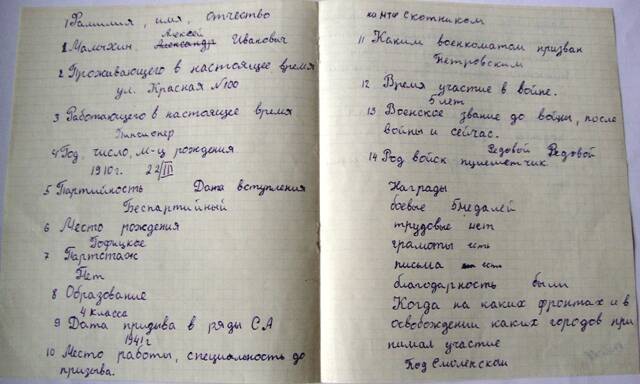 1 Фамилия, имя, Отчество
Алексей
1 Малыхин Александр Иванович
2 Проживающего в настоящее время
ул. Красная №100
3 Работающего в настоящее время
Пинсионер
4 Год, число, м-ц рождения
1910г. 22 III
5 Партийность Дата вступления
Беспартийный
6 Место рождения
Гофицкое
7 Партстаж
Нет
8 Образование
4 класса
9 Дата призыва в ряды СА
1941г
10 Место работы, специальность до
призыва.
на МТФ Скотником
11 Каким военкоматом призван
Петровским
12 Время участие в войне.
5 лет
13 Воєнское звание до войны, после
войны и сейчас.
Редовой Редовой
14 Род войск пулеметчик
Награды
боевые 5 медалей
трудовые нет
грамоты есть
письма есть
благодарность были
Когда на каких фронтах и в
освобождении каких городов при
нимал участие
Под Смоленском